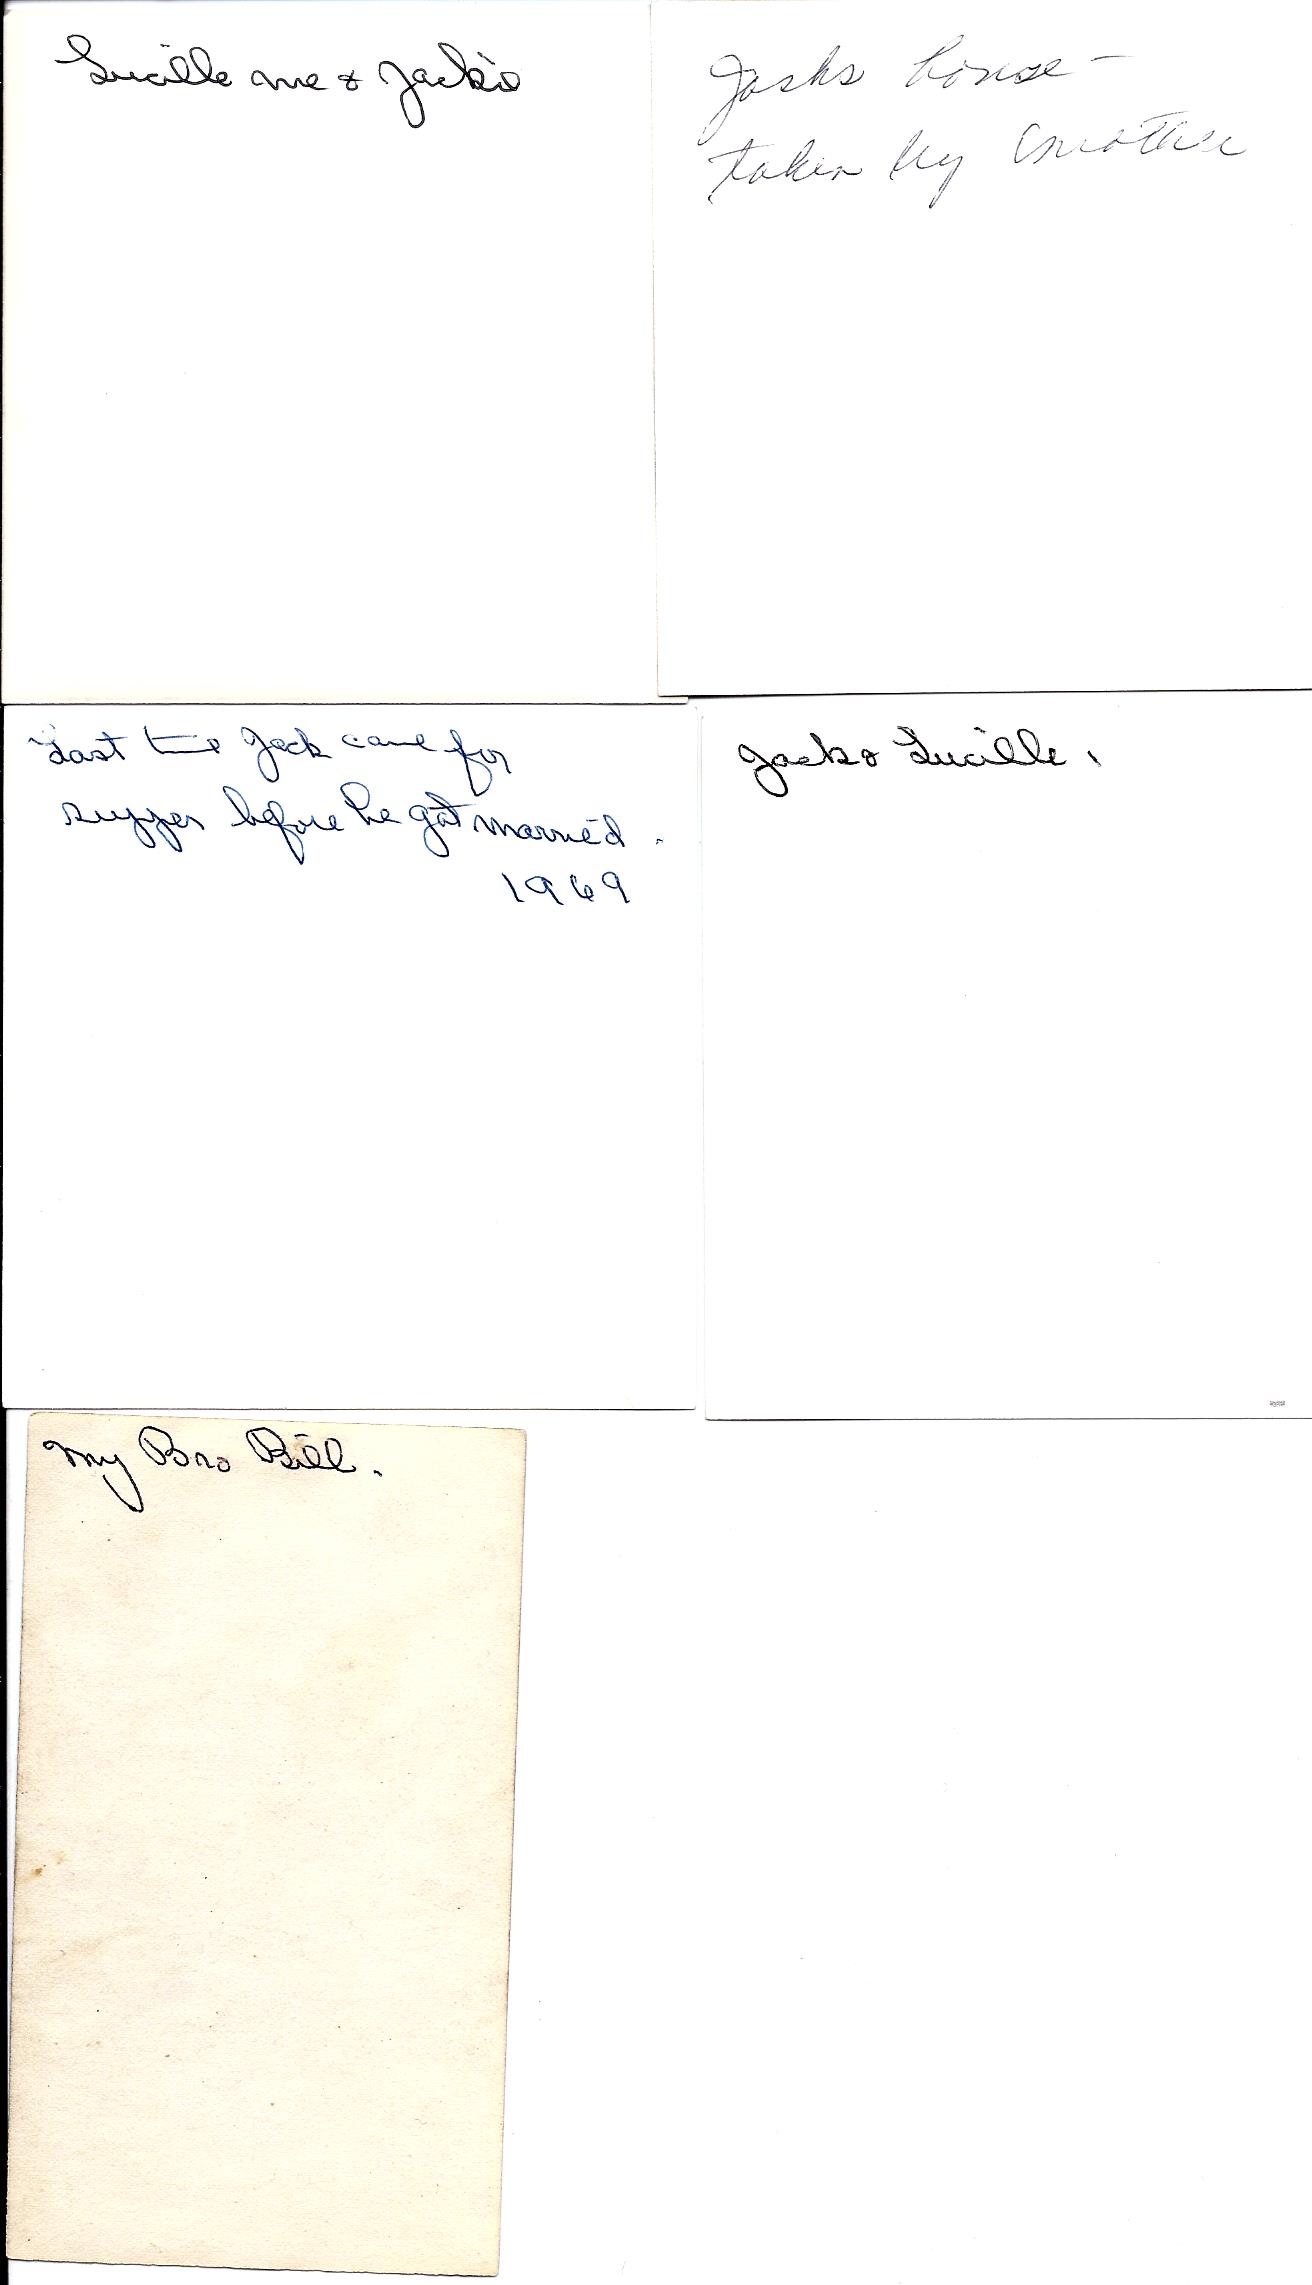 Lucille me & Jackie
Jacks house -
taken by mother
Last time Jack came for
supper before he got married.
1969
Jack & Lucille.
My Bro Bill.